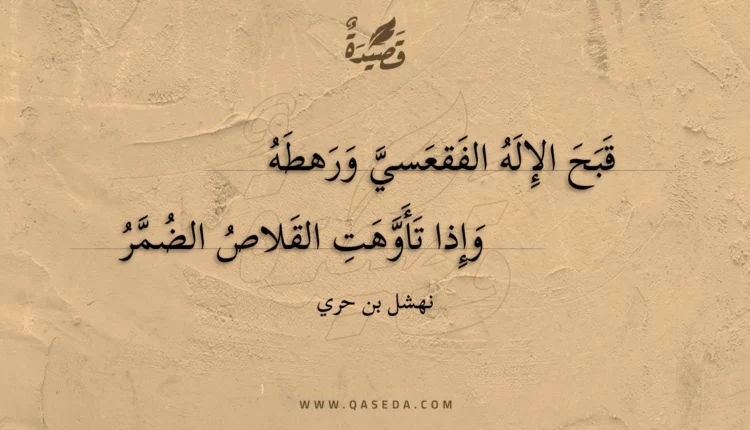 قَصِيدَةٌ
قَبَحَ الإِلَهُ الفَقعَسيَّ وَرَهطَهُ
وَإِذا تَأَوَّهَتِ القَلاصُ الضُمَّرُ
نهشل بن حري
WWW.QASEDA.COM